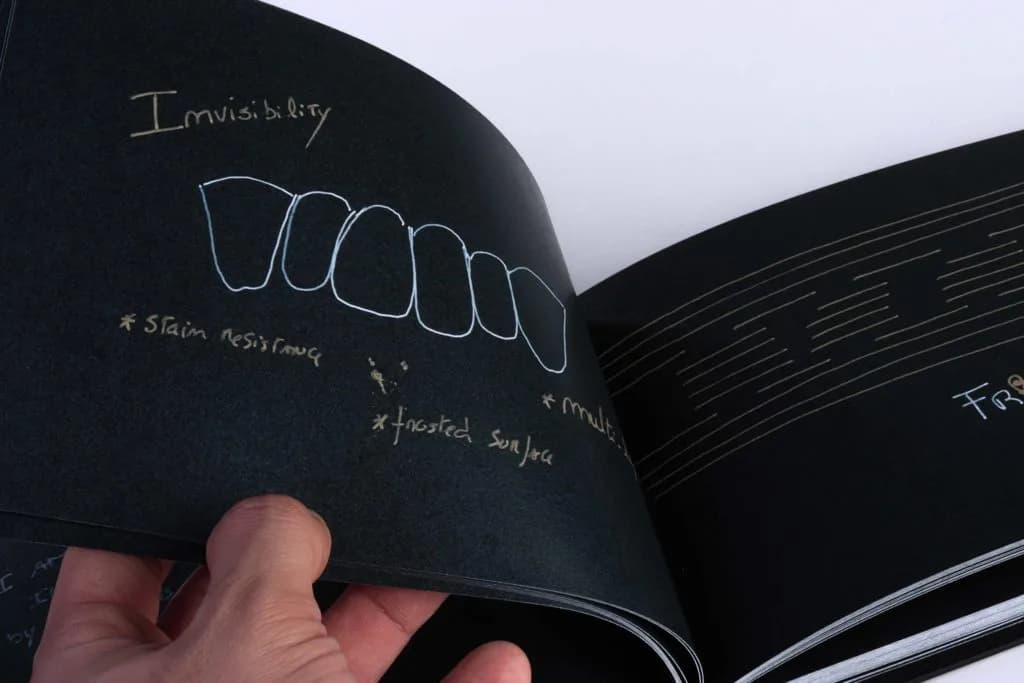 Imvisibility
* Stain resistance
* frosted surface
* multi-
FR
I
by